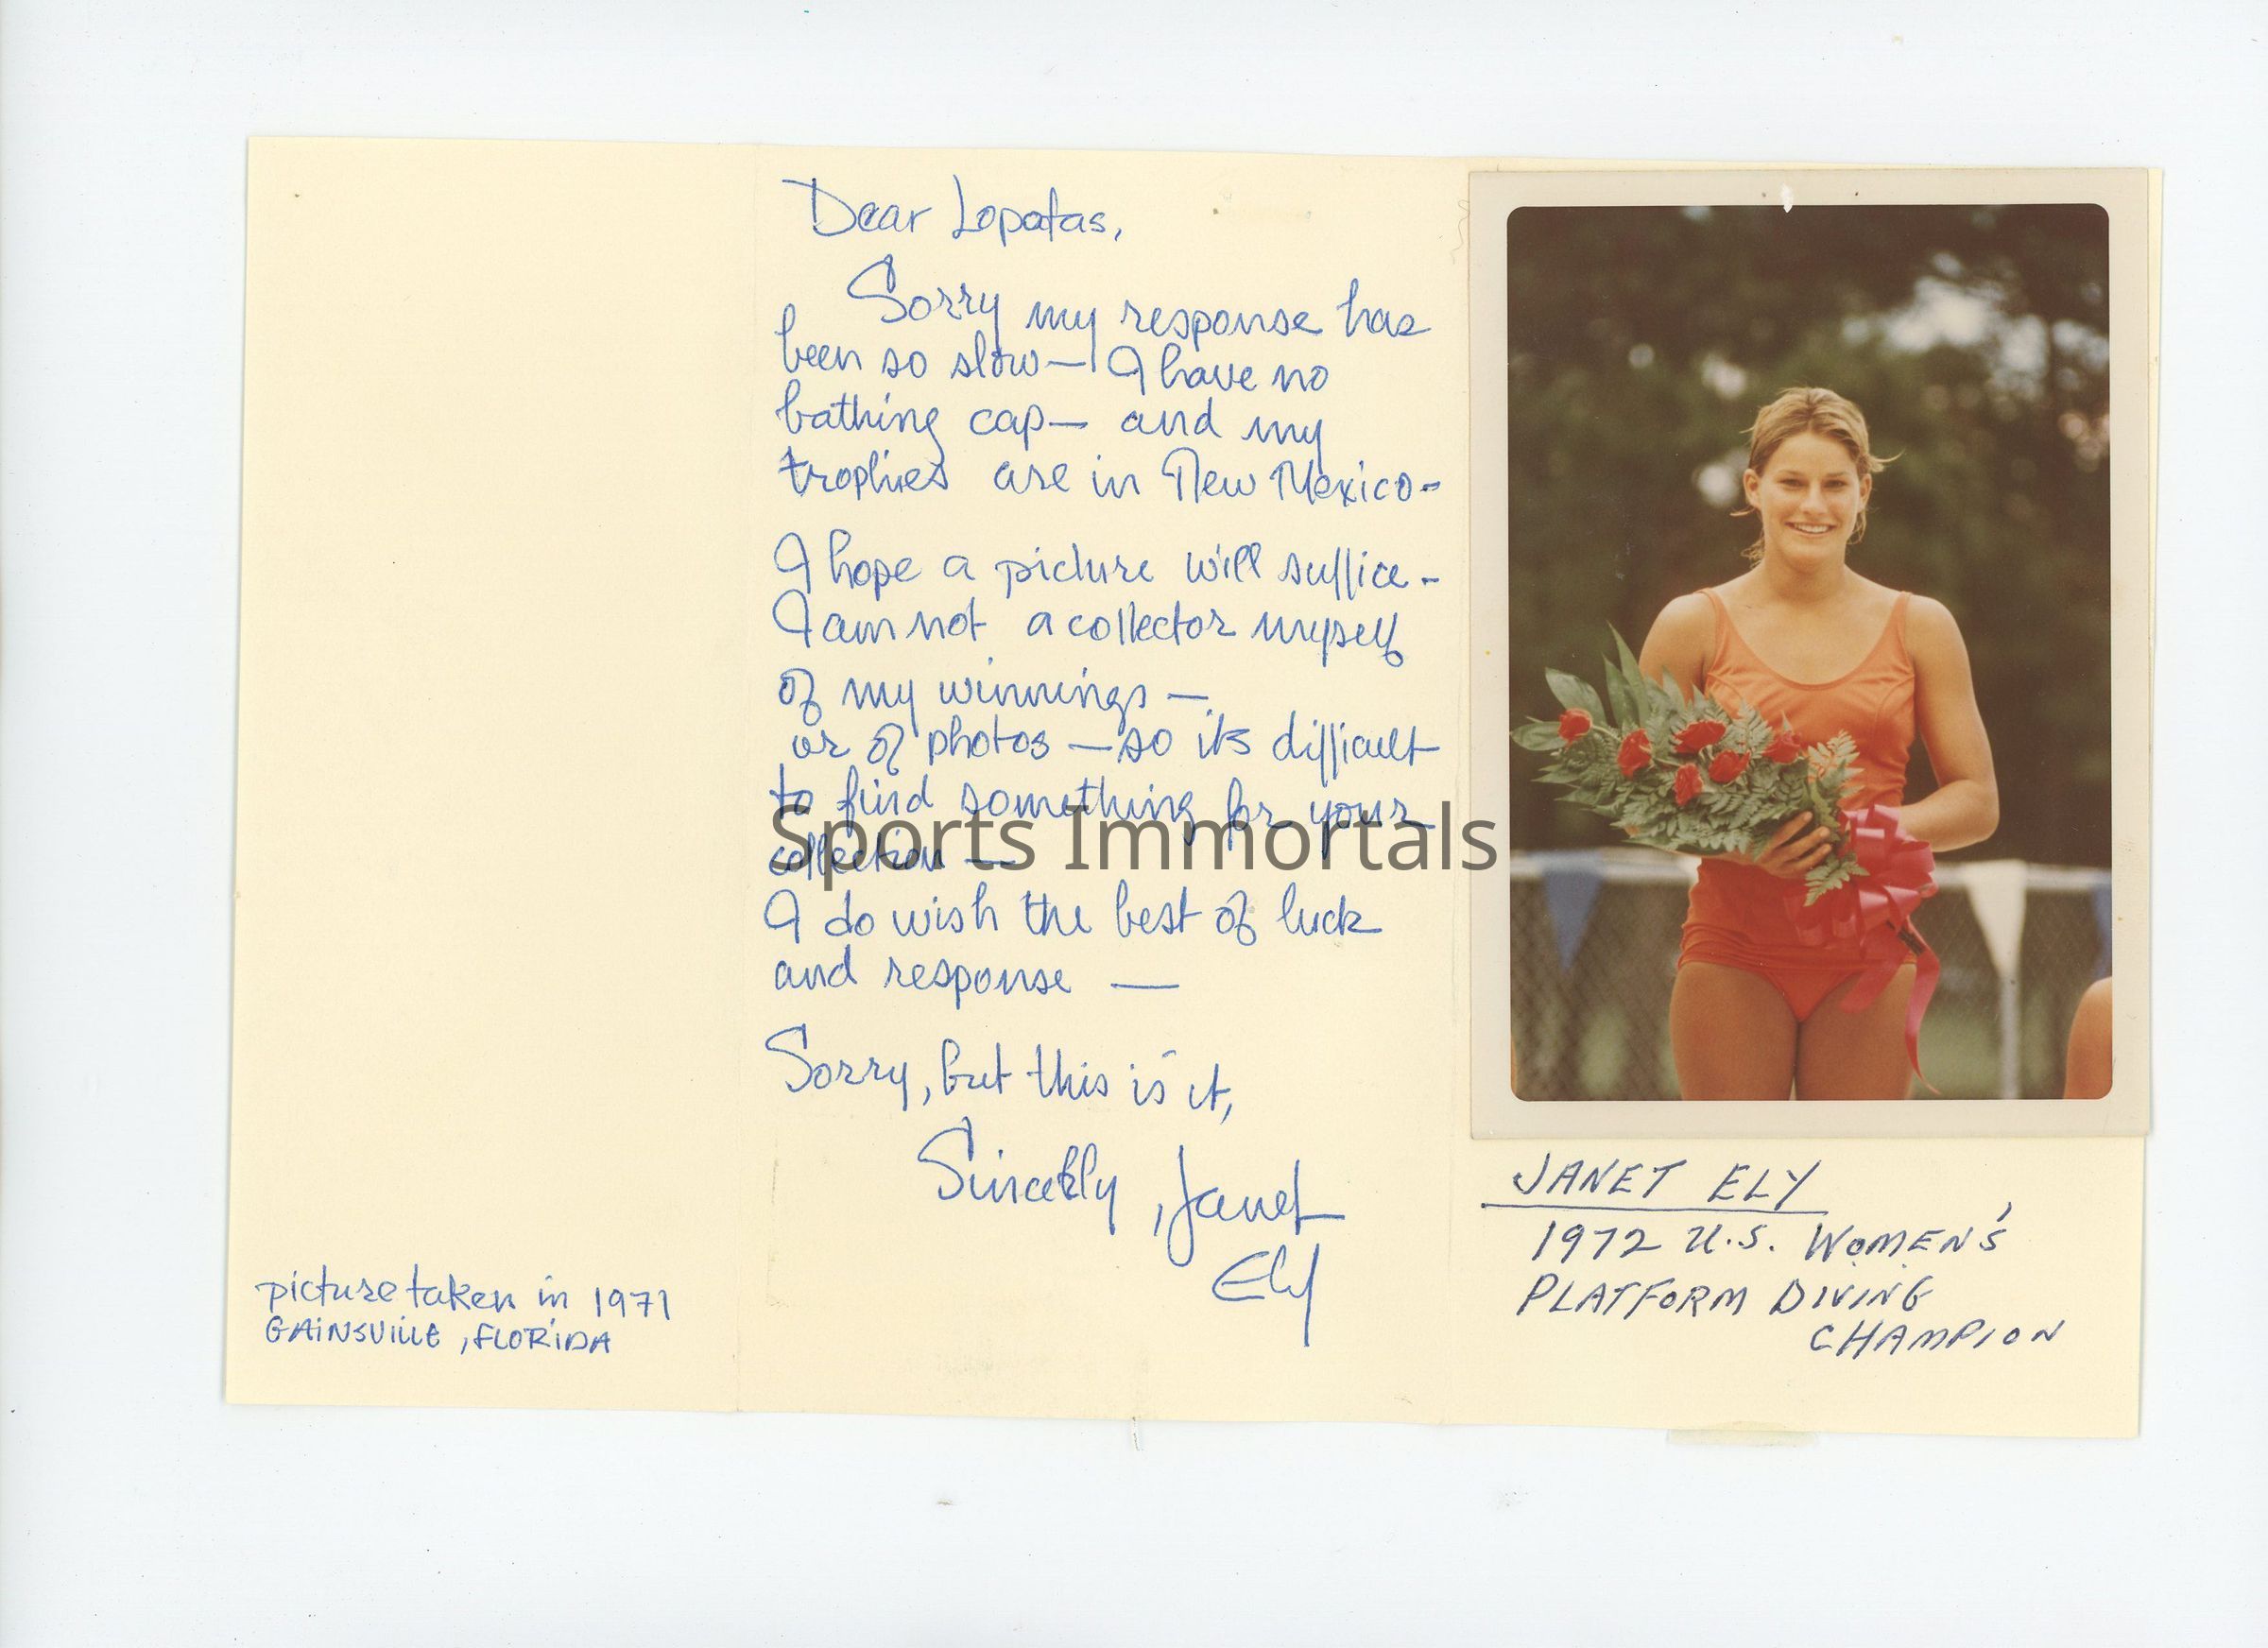 Dear Lopatas,
Sorry my response has
been so slow— I have no
bathing cap— and my
trophies are in New Mexico-
I hope a picture will suffice-
I am not a collector myself
of my winnings —
or of photos — so its difficult
to find something for your
collection —
I do wish the best of luck
and response —
Sorry, but this is it,
Sincerely, Janet
Ely
picture taken in 1971
GAiNSVillE, FLORiDA
JANET ELY
1972 U.S. WOMEN'S
PLATFORM DIVING
CHAMPION
Sports Immortals